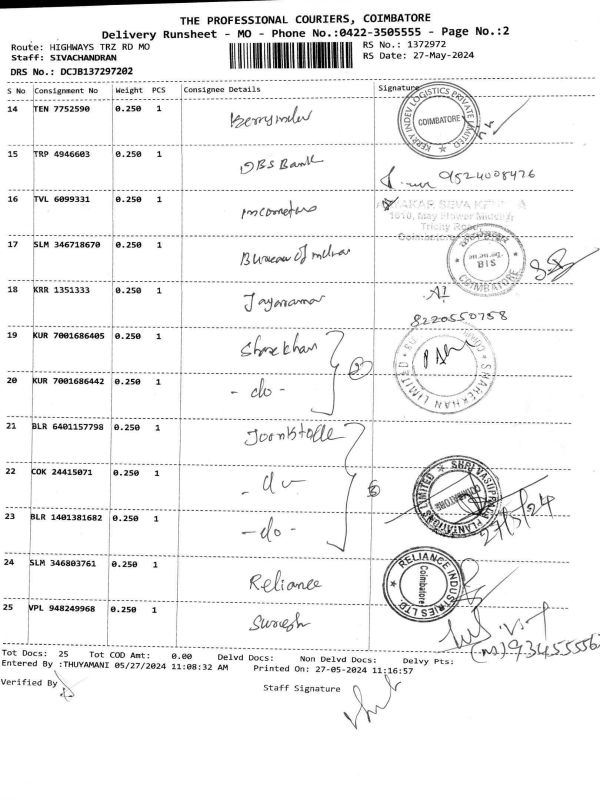 THE PROFESSIONAL COURIERS, COIMBATORE
Delivery Runsheet - MO - Phone No.:0422-3505555 - Page No.:2
Route: HIGHWAYS TRZ RD MO RS No.: 1372972
Staff: SIVACHANDRAN RS Date: 27-May-2024
DRS No.: DCJB137297202
S No Consignment No Weight PCS Consignee Details Signature
14 TEN 7752590 0.250 1 KERRY INDEV LOGISTICS PRIVATE LIMITED COIMBATORE
15 TRP 4946603 0.250 1 DBS Bank
9524008476
16 TVL 6099331 0.250 1 SEVA
1010, May Flower
Trichy Road
Coimbatore
17 SLM 346718670 0.250 1 Bureau of BIS COIMBATORE
18 KRR 1351333 0.250 1 Jayaraman
8220550758
19 KUR 7001686405 0.250 1 Sharekhan SHAREKHAN LIMITED
20 KUR 7001686442 0.250 1 - do -
21 BLR 6401157798 0.250 1
22 COK 24415071 0.250 1 - do - SHRI VASUPRADA PLANTATIONS LIMITED COIMBATORE
27/5/24
23 BLR 1401381682 0.250 1 - do -
24 SLM 346803761 0.250 1 Reliance RELIANCE INDUSTRIES LTD. Coimbatore
25 VPL 948249968 0.250 1 Suresh
Tot Docs: 25 Tot COD Amt: 0.00 Delvd Docs: Non Delvd Docs: Delvy Pts:
Entered By :THUYAMANI 05/27/2024 11:08:32 AM Printed On: 27-05-2024 11:16:57
Verified By Staff Signature